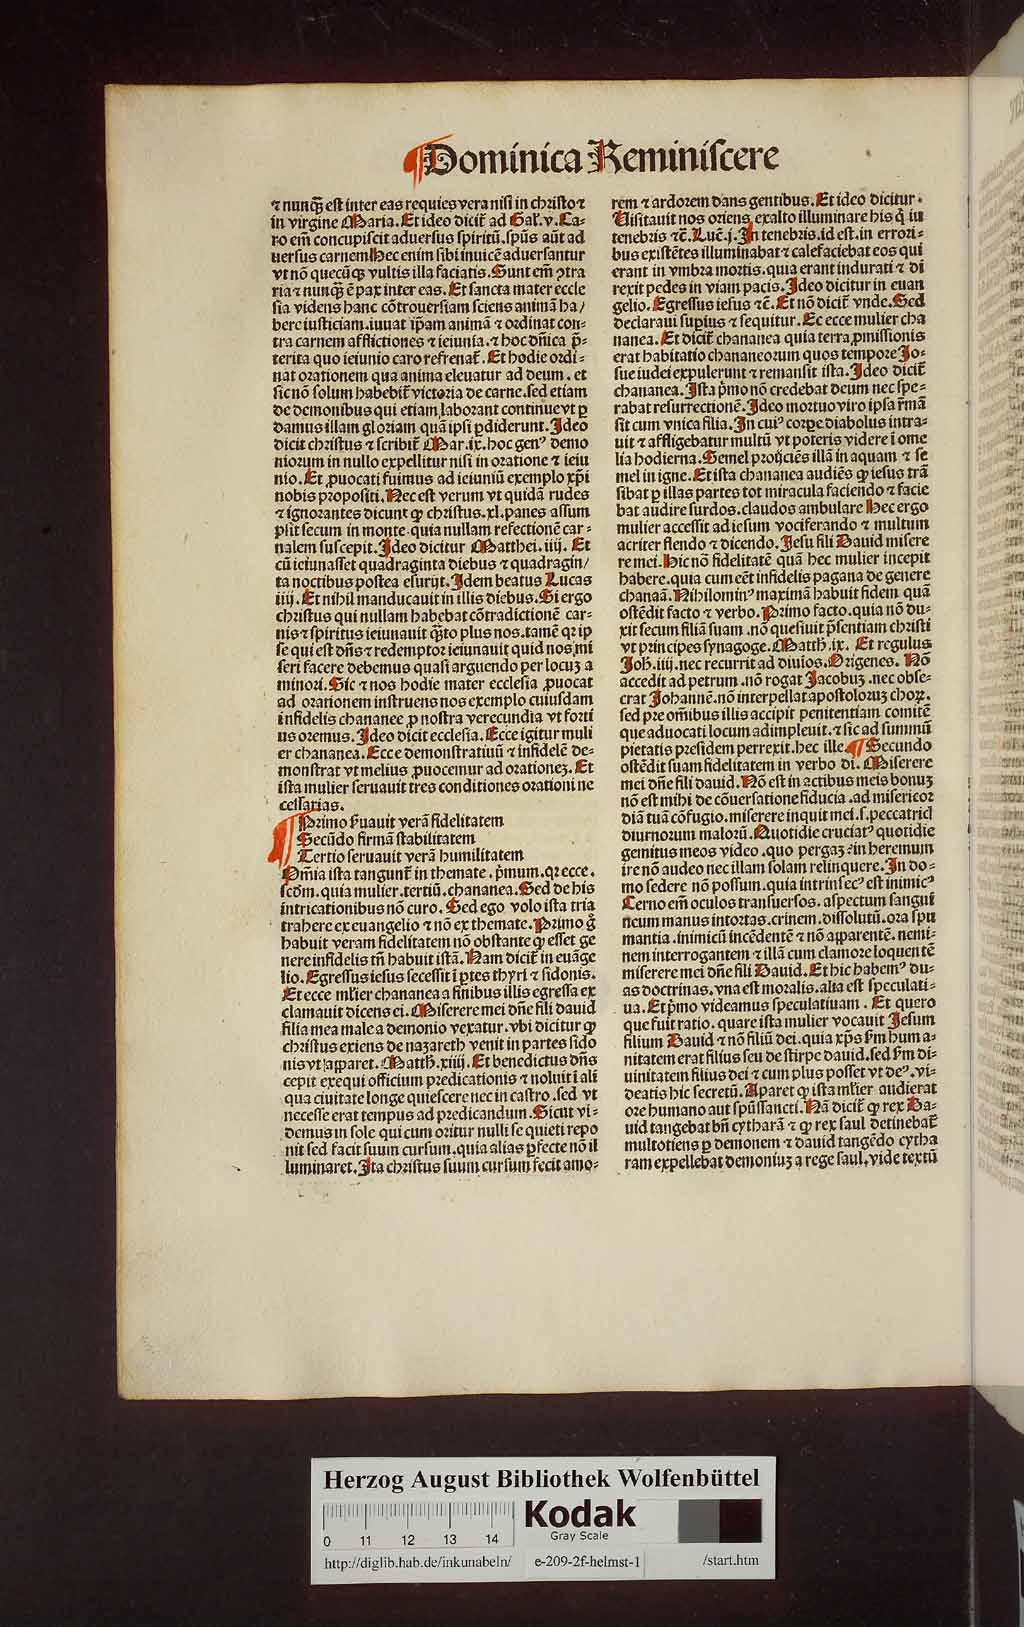 Dominica Reminiscere
⁊ nunq̄ȝ est inter eas requies vera nisi in christo ⁊
in virgine Maria. Et ideo dicit̄ ad Gal̄. v. Ca-
ro em̄ concupiscit aduersus spiritū. spūs aūt ad
uersus carnem Hec enim sibi inuicē aduersantur
vt nō quecūqȝ vultis illa faciatis. Sunt em̄ ꝯtra
ria ⁊ nunqȝ ē pax inter eas. Et sancta mater eccle
sia videns hanc cōtrouersiam sciens animā ha/
bere iusticiam. iuuat ip̄am animā ⁊ ordinat con-
tra carnem afflictiones ⁊ ieiunia. ⁊ hoc dn̄ica p̄-
terita quo ieiunio caro refrenat̄. Et hodie ordi-
nat orationem qua anima eleuatur ad deum. et
sic nō solum habebit̄ victoria de carne. sed etiam
de demonibus qui etiam laborant continue vt ꝑ
damus illam gloriam quā ipsi ꝑdiderunt. Ideo
dicit christus ⁊ scribit̄ Mar. ix. hoc genꝰ demo
niorum in nullo expellitur nisi in oratione ⁊ ieiu
nio. Et ꝓuocati fuimus ad ieiuniū exemplo xp̄i
nobis propositi. Nec est verum vt quidā rudes
⁊ ignorantes dicunt ꝙ christus. xl. panes assum
psit secum in monte. quia nullam refectionē car-
nalem suscepit. Ideo dicitur Matthei. iiij. Et
cū ieiunasset quadraginta diebus ⁊ quadragin/
ta noctibus postea esurijt. Idem beatus Lucas
iiij. Et nihil manducauit in illis diebus. Si ergo
christus qui nullam habebat cōtradictionē car-
nis ⁊ spiritus ieiunauit q̄ȝto plus nos. tamē qꝛ ip
se qui est dn̄s ⁊ redemptor ieiunauit quid nos mi
seri facere debemus quasi arguendo per locuȝ a
minori. Sic ⁊ nos hodie mater ecclesia ꝓuocat
ad orationem instruens nos exemplo cuiusdam
infidelis chananee ꝓ nostra verecundia vt forti
us oremus. Ideo dicit ecclesia. Ecce igitur muli
er chananea. Ecce demonstratiuū ⁊ infidelē de-
monstrat vt melius ꝓuocemur ad orationeȝ. Et
ista mulier seruauit tres conditiones orationi ne
cessarias.
Primo s̄uauit verā fidelitatem
Secūdo firmā stabilitatem
Tertio seruauit verā humilitatem
Om̄ia ista tangunt̄ in themate. p̄mum. qꝛ ecce.
scd̄m. quia mulier. tertiū. chananea. Sed de his
intricationibus nō curo. Sed ego volo ista tria
trahere ex euangelio ⁊ nō ex themate. Primo g̊
habuit veram fidelitatem nō obstante ꝙ esset ge
nere infidelis tn̄ habuit istā. Nam dicit̄ in euāge
lio. Egressus iesus secessit ī ꝑtes thyri ⁊ sidonis.
Et ecce ml̄ier chananea a finibus illis egressa ex
clamauit dicens ei. Miserere mei dn̄e fili dauid
filia mea male a demonio vexatur. vbi dicitur ꝙ
christus exiens de nazareth venit in partes sido
nis vt apparet. Matth̄. xiiij. Et benedictus dn̄s
cepit exequi officium predicationis ⁊ noluit ī ali
qua ciuitate longe quiescere nec in castro. sed vt
necesse erat tempus ad predicandum. Sicut vi-
demus in sole qui cum oritur nulli se quieti repo
nit sed facit suum cursum. quia alias ꝑfecte nō il
luminaret. Ita christus suum cursum fecit amo-
rem ⁊ ardorem dans gentibus. Et ideo dicitur.
Uisitauit nos oriens exalto illuminare his q̄ in
tenebris ⁊c̄. Luc̄. j. In tenebris. id est. in errori-
bus existētes illuminabat ⁊ calefaciebat eos qui
erant in vmbra mortis. quia erant indurati ⁊ di
rexit pedes in viam pacis. Ideo dicitur in euan
gelio. Egressus iesus ⁊c̄. Et nō dicit̄ vnde. Sed
declaraui sup̄ius ⁊ sequitur. Ec ecce mulier cha
nanea. Et dicit̄ chananea quia terra ꝓmissionis
erat habitatio chananeorum quos tempore Jo-
sue iudei expulerunt ⁊ remansit ista. Ideo dicit̄
chananea. Ista p̄mo nō credebat deum nec spe-
rabat resurrectionē. Ideo mortuo viro ipsa r̄mā
sit cum vnica filia. In cuiꝰ corpe diabolus intra-
uit ⁊ affligebatur multū vt poteris videre ī ome
lia hodierna. Semel proijciēs illā in aquam ⁊ se
mel in igne. Et ista chananea audiēs ꝙ iesus trā
sibat ꝑ illas partes tot miracula faciendo ⁊ facie
bat audire surdos. claudos ambulare Hec ergo
mulier accessit ad iesum vociferando ⁊ multum
acriter flendo ⁊ dicendo. Jesu fili Dauid misere
re mei. Hic nō fidelitatē quā hec mulier incepit
habere. quia cum eēt infidelis pagana de genere
chanaā. Nihilominꝰ maximā habuit fidem quā
ostēdit facto ⁊ verbo. Primo facto. quia nō du-
xit secum filiā suam. nō quesiuit p̄sentiam christi
vt principes synagoge. Matth̄. ix. Et regulus
Joh̄. iiij. nec recurrit ad diuios. Origenes. Nō
accedit ad petrum. nō rogat Jacobuȝ. nec obse-
crat Johannē. nō interpellat apostoloruȝ choꝝ.
sed pre om̄ibus illis accipit penitentiam comitē
que aduocati locum adimpleuit. ⁊ sic ad summū
pietatis presidem perrexit. hec ille. Secundo
ostēdit suam fidelitatem in verbo di. Miserere
mei dn̄e fili dauid. Nō est in actibus meis bonuȝ
nō est mihi de cōuersatione fiducia. ad misericor
diā tuā cōfugio. miserere inquit mei. s. peccatricl
diurnorum malorū. Quotidie cruciatꝰ quotidie
gemitus meos video. quo pergaȝ? in heremum
ire nō audeo nec illam solam relinquere. In do-
mo sedere nō possum. quia intrinsecꝰ est inimicꝰ
Cerno em̄ oculos transuersos. aspectum sangui
neum manus intortas. crinem. dissolutū. ora spu
mantia. inimicū incēdentē ⁊ nō apparentē. nemi-
nem interrogantem ⁊ illā cum clamore loquentē
miserere mei dn̄e fili Dauid. Et hic habemꝰ du-
as doctrinas. vna est moralis. alta est speculati-
ua. Et p̄mo videamus speculatiuam. Et quero
que fuit ratio. quare ista mulier vocauit Jesum
filium Dauid ⁊ nō filiū dei. quia xp̄s s̄m huma-
nitatem erat filius seu de stirpe dauid. sed s̄m di-
uinitatem filius dei ⁊ cum plus posset vt deꝰ. vi-
deatis hic secretū. Aparet ꝙ ista ml̄ier audierat
ore humano aut spūssancti. Nā dicit̄ ꝙ rex Da-
uid tangebat bn̄ cytharā ⁊ ꝙ rex saul detinebat̄
multotiens ꝑ demonem ⁊ dauid tangēdo cytha
ram expellebat demoniuȝ a rege saul. vide textū
Herzog August Bibliothek Wolfenbüttel
0 11 12 13 14
Kodak
Gray Scale
http://diglib.hab.de/inkunabeln/ e-209-2f-helmst-1 /start.htm